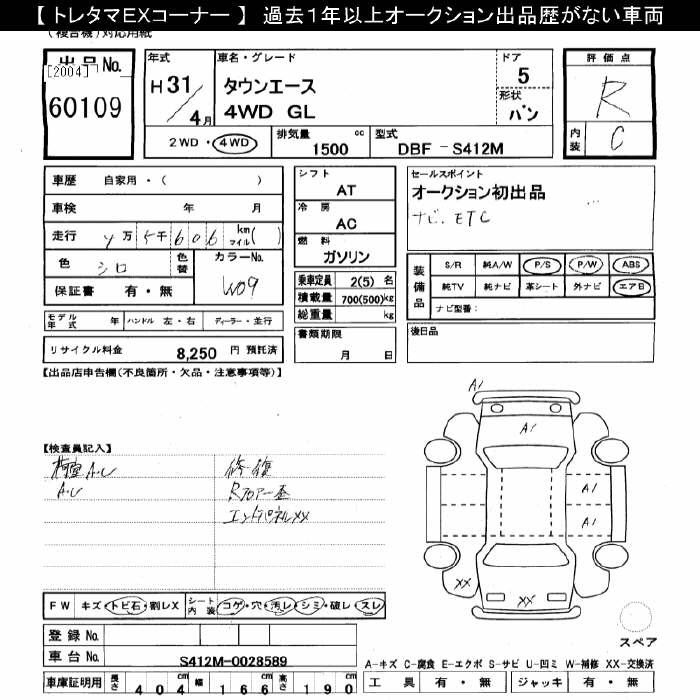 【 トレタマEXコーナー 】 過去1年以上オークション出品歴がない車両
(複合機)対応用紙
出品 No. 年式 車名・グレード ドア 評価点
[2004] H 31 タウンエース 5 R
60109 4月 4WD GL 形状 バン
2WD・4WD 排気量 cc 1500 型式 DBF - S412M 内装 C
車歴 自家用・( ) シフト AT セールスポイント
車検 年 月 冷房 AC オークション初出品
走行 4万5千606 km マイル( ) 燃料 ガソリン ナビ、ETC
色 シロ 色替 カラーNo. W09
保証書 有・無
乗車定員 2(5) 名
積載量 700(500)kg
総重量 kg
装備品 S/R 純A/W P/S P/W ABS
純TV 純ナビ 革シート 外ナビ エアB
ナビ型番:
モデル年式 年 ハンドル 左・右 ディーラー・並行
書類期限 年 月 日
後日品
リサイクル料金 8,250 円 預託済
【出品店申告欄(不良箇所・欠品・注意事項等)】
A1
A1
【検査員記入】
A.U 修復
A.U Rフロアー歪
エンドパネルXX
A1
A1
XX XX
FW キズ・トビ石・割レX シート内装 コゲ・穴・汚レ・シミ・破レ・スレ
登録 No.
車台 No. S412M-0028589
スペア
A-キズ C-腐食 E-エクボ S-サビ U-凹ミ W-補修 XX-交換済
車庫証明用 長さ 404 cm 幅 166 cm 高さ 190 cm
工具 有・無 ジャッキ 有・無